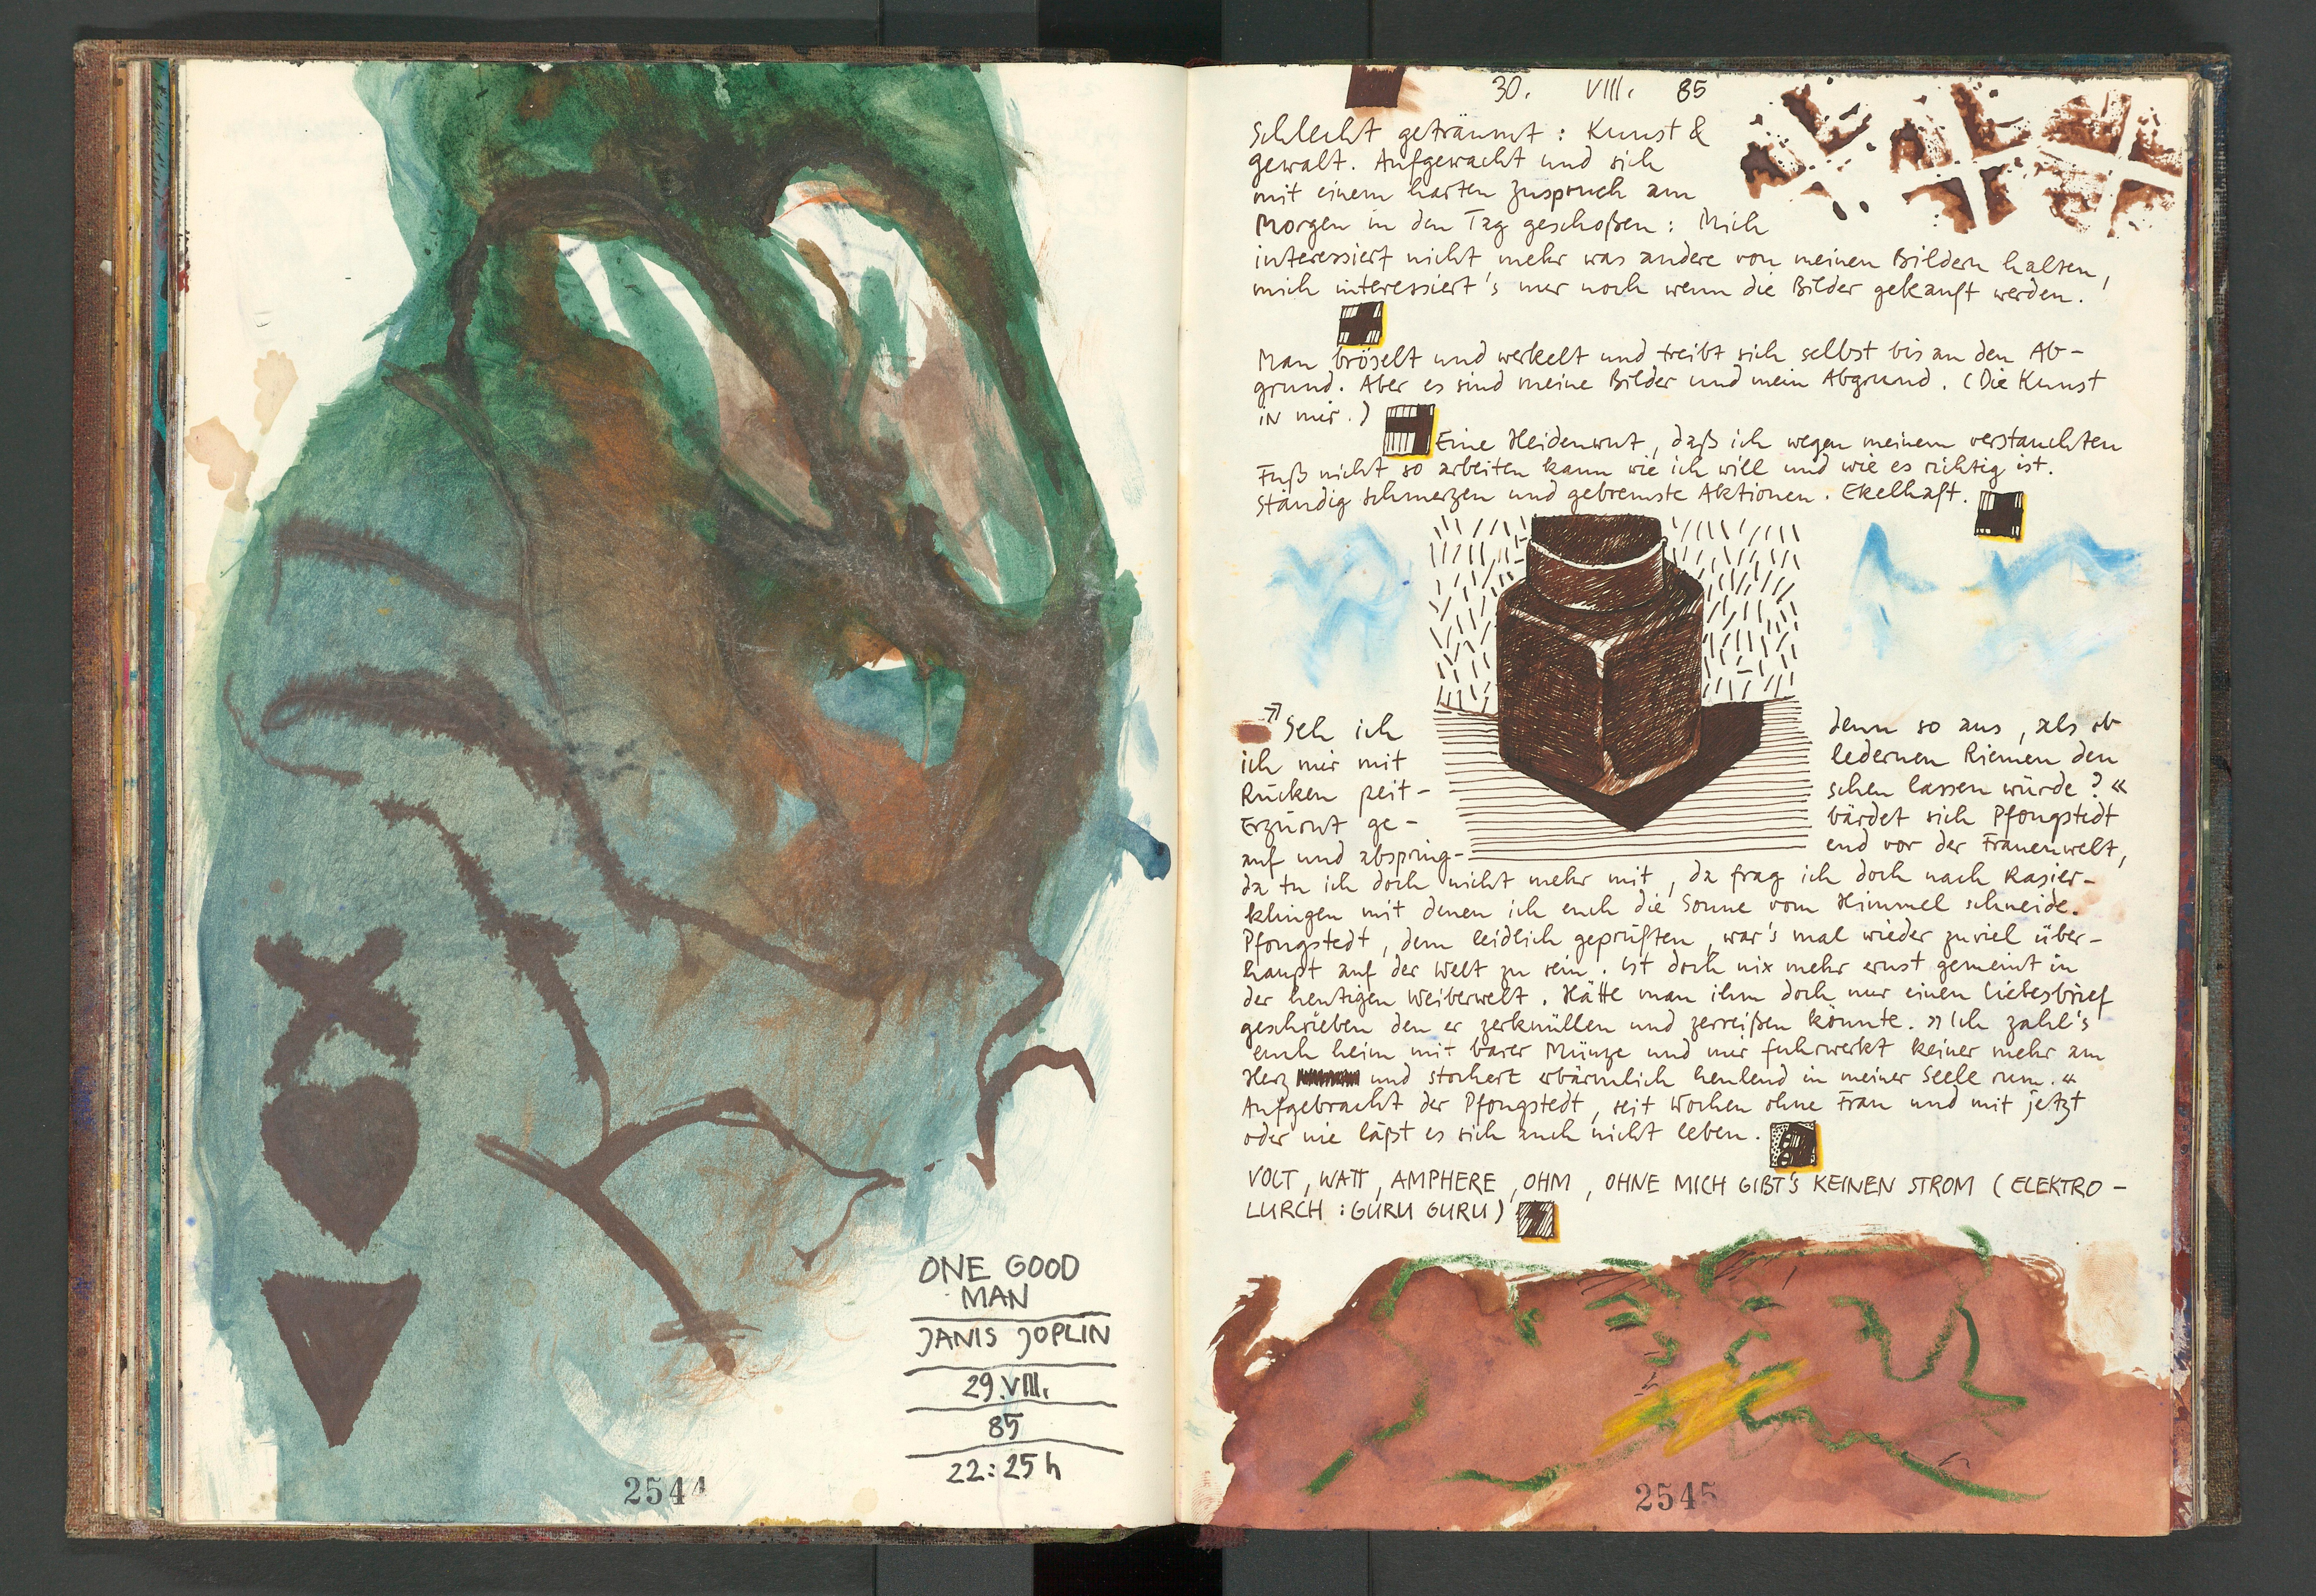 ONE GOOD
MAN
JANIS JOPLIN
29.VIII.
85
22:25 h
2544
30. VIII. 85
Schlecht geträumt: Kunst &
gewalt. Aufgewacht und sich
mit einem harten Zuspruch am
Morgen in den Tag geschoßen: Mich
interessiert nicht mehr was andere von meinen Bildern halten,
mich interessiert's nur noch wenn die Bilder gekauft werden.
Man bröselt und werkelt und treibt sich selbst bis an den Ab-
grund. Aber es sind meine Bilder und mein Abgrund. (Die Kunst
IN mir.)
Eine Heidenwut, daß ich wegen meinem verstauchten
Fuß nicht so arbeiten kann wie ich will und wie es richtig ist.
Ständig schmerzen und gebremste Aktionen. Ekelhaft.
»Seh ich denn so aus, als ob
ich mir mit ledernen Riemen den
Rücken peit- schen lassen würde?«
Erzürnt ge- bärdet sich Pfongstedt
auf und abspring- end vor der Frauenwelt,
da tu ich doch nicht mehr mit, da frag ich doch nach Rasier-
klingen mit denen ich euch die Sonne vom Himmel schneide.
Pfongstedt, dem leidlich geprüften, war's mal wieder zuviel über-
haupt auf der Welt zu sein. Ist doch nix mehr ernst gemeint in
der heutigen Weiberwelt. Hätte man ihm doch nur einen Liebesbrief
geschrieben den er zerknüllen und zerreißen könnte. »Ich zahl's
euch heim mit barer Münze und mir fuhrwerkt keiner mehr am
Herz und stochert erbärmlich heulend in meiner Seele rum.«
Aufgebracht der Pfongstedt, seit Wochen ohne Frau und mit jetzt
oder nie läßt es sich auch nicht leben.
VOLT, WATT, AMPHERE, OHM, OHNE MICH GIBT'S KEINEN STROM (ELEKTRO-
LURCH: GURU GURU)
2545